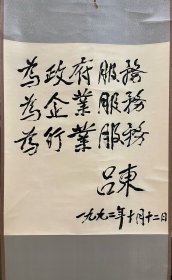 為政府服務
為企業服務
為行業服務
呂東
一九九二年十月十二日